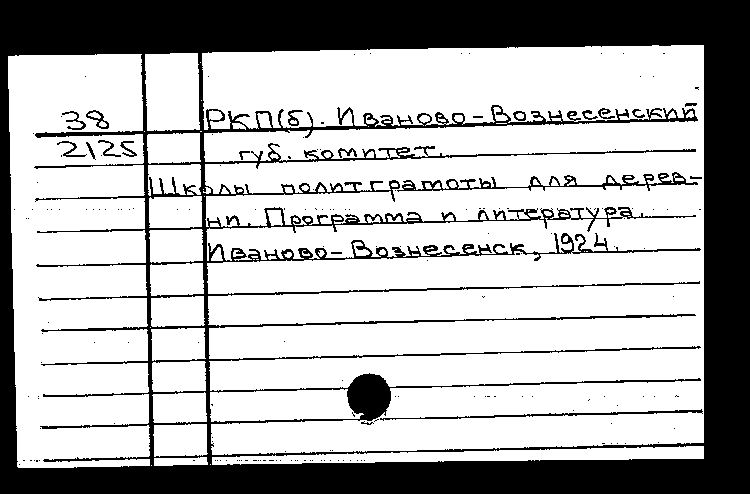 38 РКП(б). Иваново-Вознесенский
2125 губ. комитет.
Школы политграмоты для дерев-
ни. Программа и литература.
Иваново-Вознесенск, 1924.